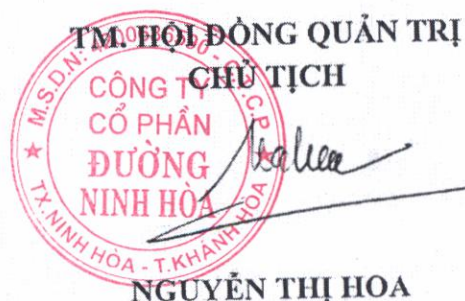 TM. HỘI ĐỒNG QUẢN TRỊ
CHỦ TỊCH
CÔNG TY
CỔ PHẦN
ĐƯỜNG
NINH HÒA
TX. NINH HÒA - T. KHÁNH HÒA
NGUYỄN THỊ HOA